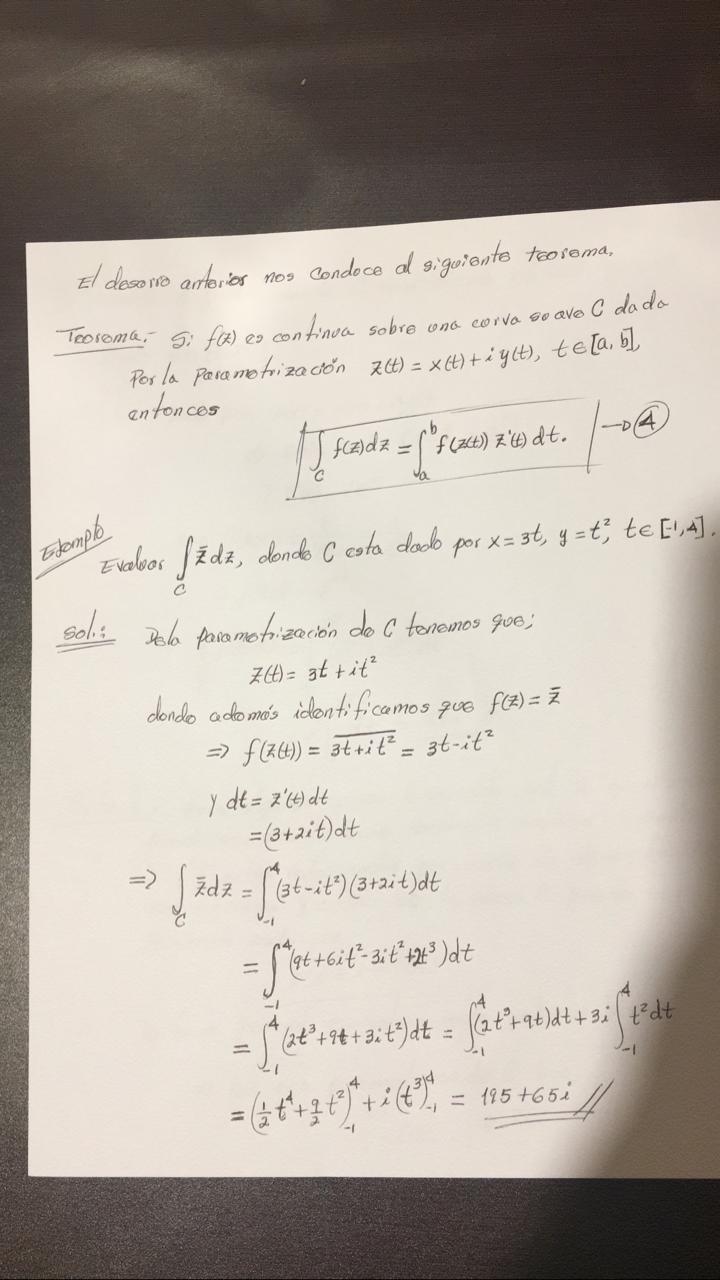 El desarro anterior nos conduce al siguiente teorema.
Teorema.- Si f(z) es continua sobre una curva suave C dada
Por la Parametrización z(t) = x(t) + i y(t), t ∈ [a, b],
entonces
∫_C f(z)dz = ∫_a^b f(z(t)) z'(t) dt. → ④
Ejemplo
Evaluar ∫_C z̄ dz, donde C esta dado por x = 3t, y = t², t ∈ [-1, 4].
Sol.: De la parametrización de C tenemos que;
z(t) = 3t + it²
donde además identificamos que f(z) = z̄
⇒ f(z(t)) = \overline{3t + it²} = 3t - it²
y dt = z'(t) dt
= (3 + 2it) dt
⇒ ∫_C z̄ dz = ∫_{-1}^4 (3t - it²)(3 + 2it) dt
= ∫_{-1}^4 (9t + 6it² - 3it² + 2t³) dt
= ∫_{-1}^4 (2t³ + 9t + 3it²) dt = ∫_{-1}^4 (2t³ + 9t) dt + 3i ∫_{-1}^4 t² dt
= (1/2 t⁴ + 9/2 t²)_{-1}^4 + i (t³)_{-1}^4 = 195 + 65i //